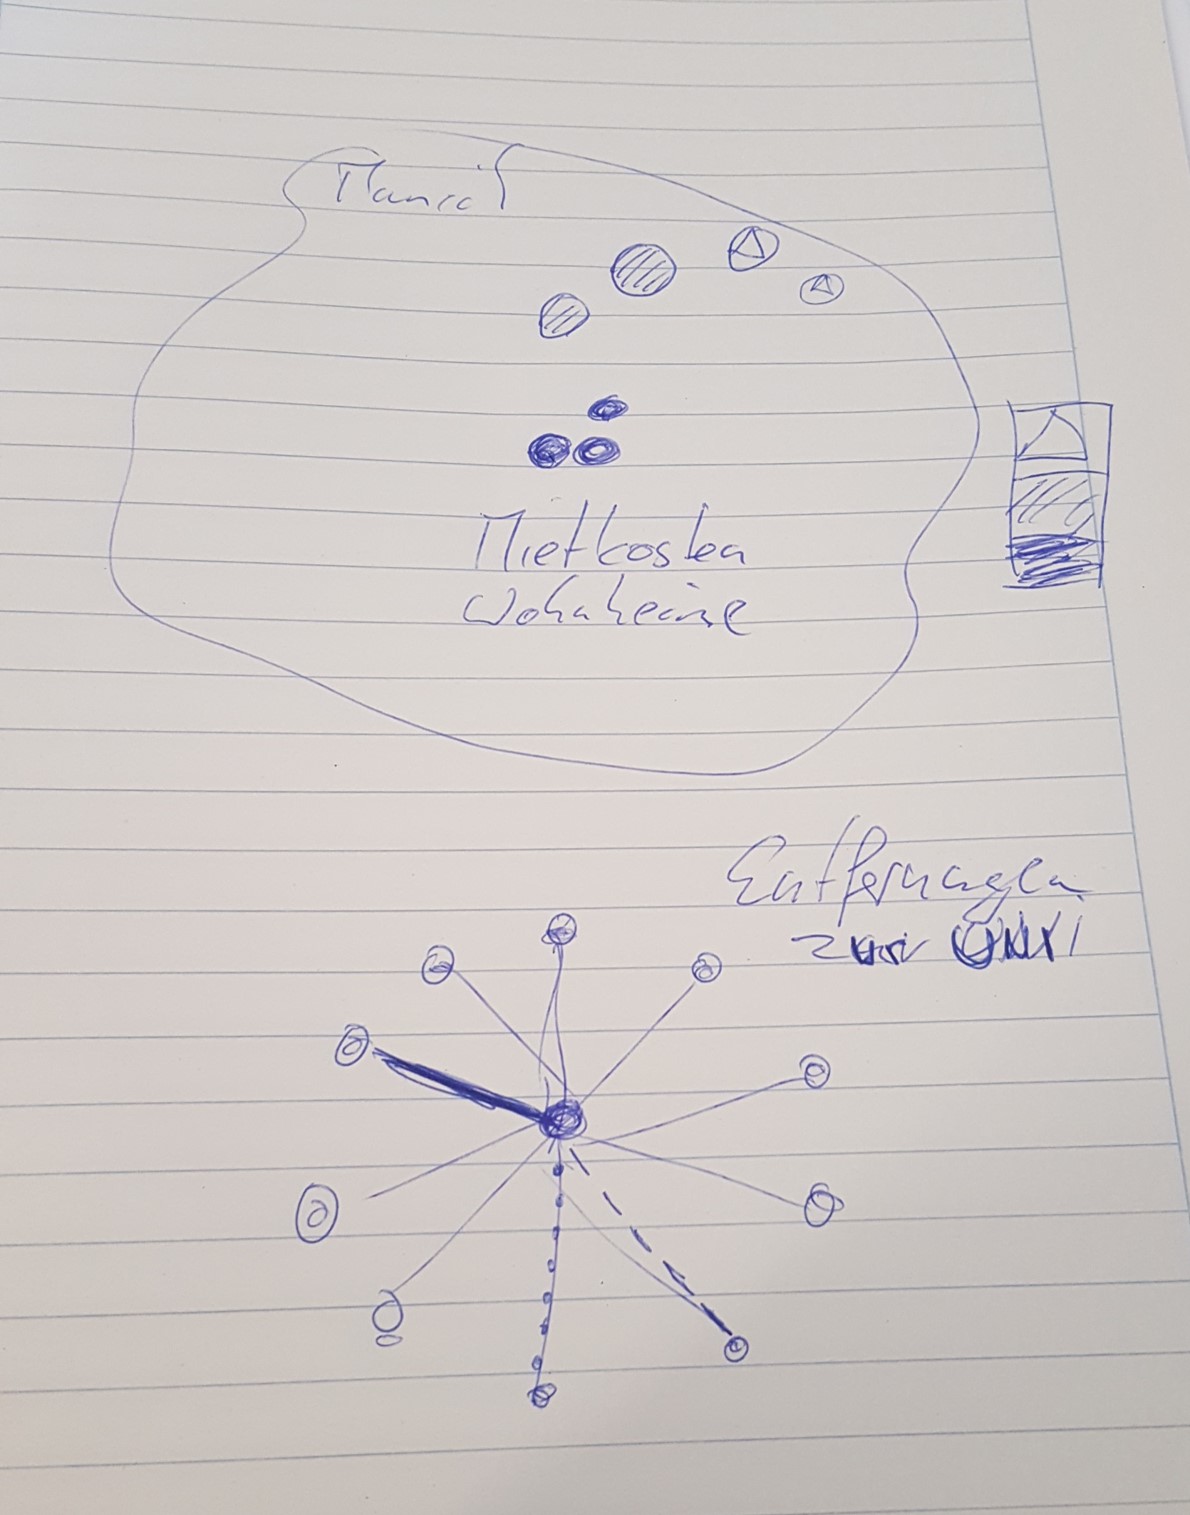 Mietkosten
Wohnheime
Entfernungen
zur UNI